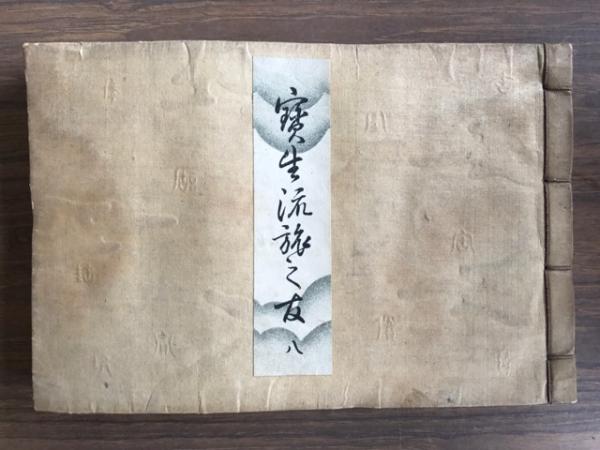 寶生流旅之友 八